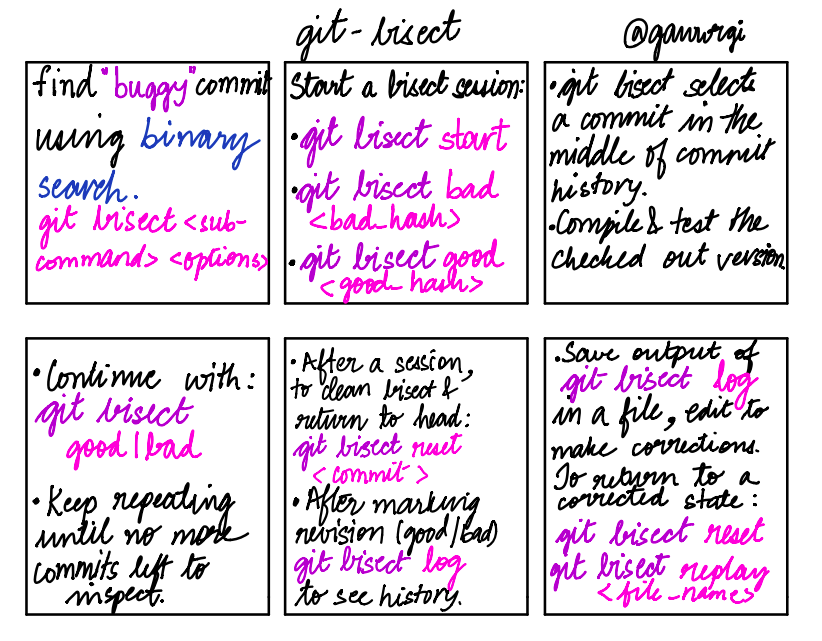 git-bisect
@gauurgi
find "buggy" commit
using binary
search.
git bisect <sub-
command> <options>
Start a bisect session:
• git bisect start
• git bisect bad
<bad_hash>
• git bisect good
<good_hash>
• git bisect selects
a commit in the
middle of commit
history.
• Compile & test the
checked out version
• Continue with:
git bisect
good|bad
• Keep repeating
until no more
commits left to
inspect.
• After a session,
to clean bisect &
return to head:
git bisect reset
<commit>
• After marking
revision (good/bad)
git bisect log
to see history.
• Save output of
git bisect log
in a file, edit to
make corrections.
To return to a
corrected state:
git bisect reset
git bisect replay
<file_name>